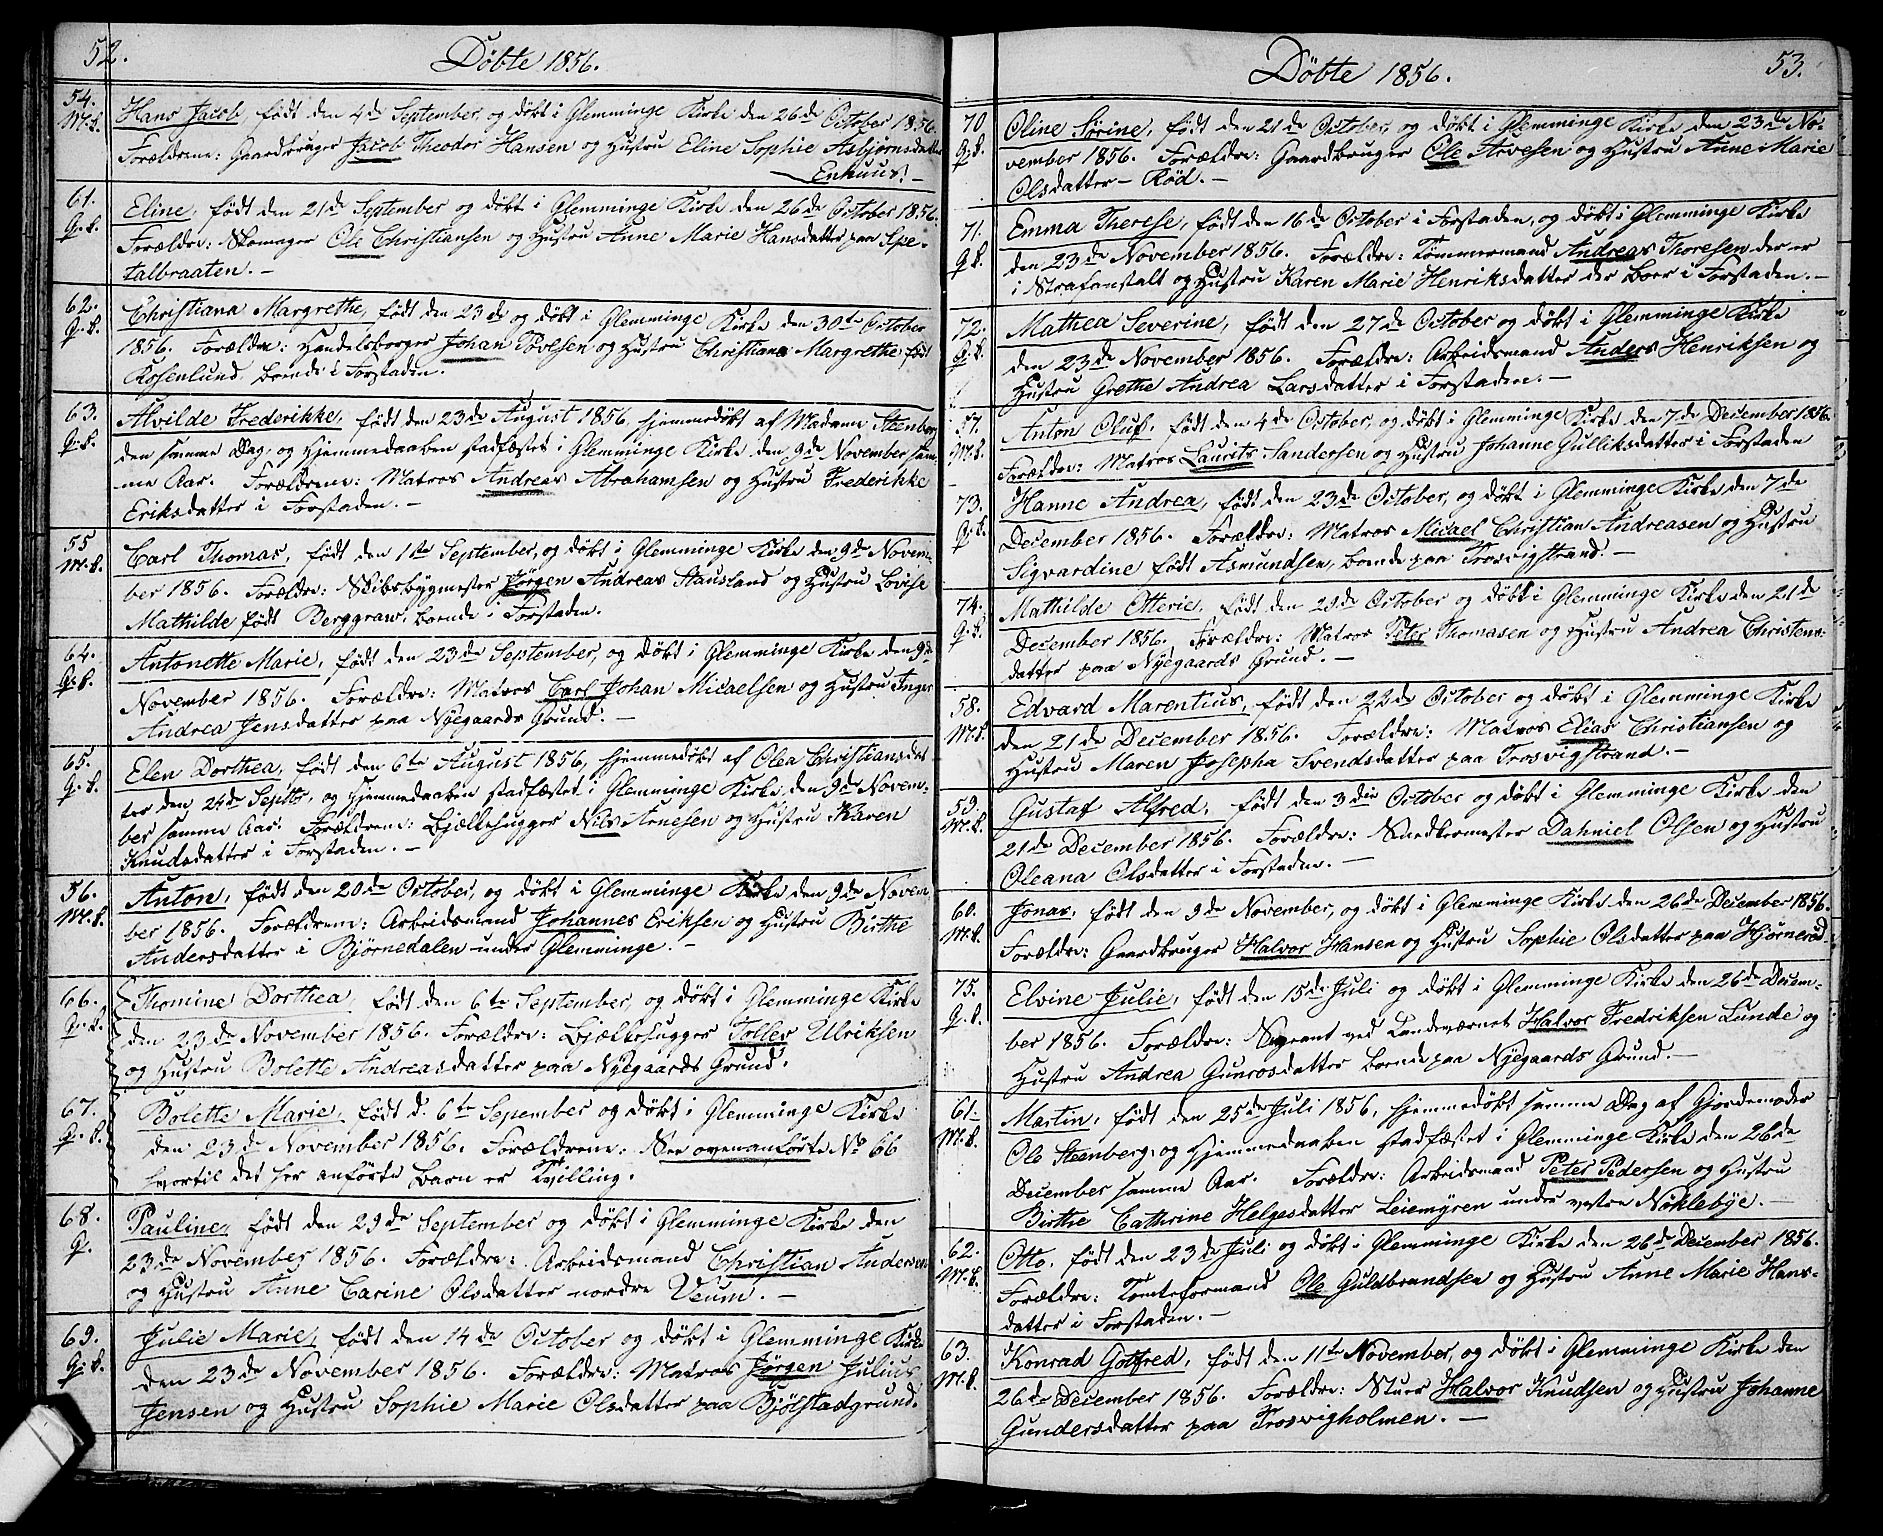 52.
Döbte 1856.
54. Hans Jacob, født den 4de September, og døbt i Glemminge Kirke den 26de October 1856.
M.k. Forældrene: Gaardbruger Jacob Theodor Hansen og Hustru Eline Sophie Asbjørnsdatter
Enhuus. –
61. Eline, født den 21de September og døbt i Glemminge Kirke den 26de October 1856.
Q.k. Forældre: Skomager Ole Christiansen og Hustru Anne Marie Hansdatter paa Spe-
talbraaten. –
62. Christiana Margrethe, født den 23de og døbt i Glemminge Kirke den 30te October
Q.k. 1856. Forældre: Handelsborger Johan Tovesen og Hustru Christiana Margrethe født
Rosenlund, boende i Forstaden.
63. Alvilde Frederikke, født den 23de August 1856, hjemmedøbt af Madame Steenberg
Q.k. den samme Dag, og Hjemmedaaben stadfæstet i Glemminge Kirke den 9de November sam-
me Aar. Forældrene: Matros Andreas Abrahamsen og Hustru Frederikke
Eriksdatter i Forstaden. –
55 Carl Thomas, født den 1ste September, og døbt i Glemminge Kirke den 9de Novem-
M.k. ber 1856. Forældre: Skibsbygmester Jörgen Andreas Stausland og Hustru Lovise
Mathilde født Berggraw, boende i Forstaden.
64. Antonette Marie, født den 23de September, og døbt i Glemminge Kirke den 9de
Q.k. November 1856. Forældre: Matros Carl Johan Micaelsen og Hustru Inger
Andrea Jensdatter paa Nyegaards Grund. –
65. Elen Dorthea, født den 6te August 1856, hjemmedøbt af Olea Christiansdat
Q.k. ter den 24de Septbr, og Hjemmedaaben stadfæstet i Glemminge Kirke den 9de Novem-
ber samme Aar. Forældrene: Bjælkehugger Nils Arnesen og Hustru Karen
Knudsdatter i Forstaden. –
56. Anton, født den 20de October, og døbt i Glemminge Kirke den 9de Novem
M.k. ber 1856. Forældrene: Arbeidsmand Johannes Eriksen og Hustru Birthe
Andersdatter i Bjørnedalen under Glemminge. –
66. Thomine Dorthea, født den 6te September, og døbt i Glemminge Kirke
Q.k. den 23de November 1856. Forældre: Bjælkehugger Toller Ulriksen
og Hustru Bolette Andreasdatter paa Nyegaards Grund.
67. Bolette Marie, født d. 6te September og døbt i Glemminge Kirke
Q.k. den 23de November 1856. Forældrene: See ovenanførte No 66
hvortil det her anførte Barn er Tvilling.
68. Pauline, født den 29de September og døbt i Glemminge Kirke den
Q. 23de November 1856. Forældre: Arbeidsmand Christian Andersen
og Hustru Anne Carine Olsdatter nordre Veum. –
69. Julie Marie, født den 14de October og døbt i Glemminge Kirke
Q.k. den 23de November 1856. Forældre: Matros Jörgen Julius
Jensen og Hustru Sophie Marie Olsdatter paa Bjölstadgrund.
53.
Döbte 1856.
70 Oline Sörine, født den 21de October, og døbt i Glemminge Kirke den 23de No-
Q.k. vember 1856. Forældre: Gaardbruger Ole Arvesen og Hustru Anne Marie
Olsdatter – Röd. –
71. Emma Therese, født den 16de October i Forstaden, og døbt i Glemminge Kirke
Q.k. den 23de November 1856. Forældre: Tömmermand Andreas Thoresen der er
i Strafanstalt og Hustru Karen Marie Henriksdatter der boer i Forstaden. –
72. Mathea Severine, født den 27de October og døbt i Glemminge Kirke
Q.k. den 23de November 1856. Forældre: Arbeidsmand Anders Henriksen og
Hustru Grethe Andrea Larsdatter i Forstaden. –
57. Anton Oluf, født den 4de October, og døbt i Glemminge Kirke den 7de December 1856.
M.k. Forældre: Matros Laurits Sandersen og Hustru Johanne Gulliksdatter i Forstaden
73. Hanne Andrea, født den 23de October, og døbt i Glemminge Kirke den 7de
Q.k. December 1856. Forældre: Matros Micael Christian Andreasen og Hustru
Sigvardine født Asmundsen, boende paa Trosvigstrand. –
74. Mathilde Otterie, født den 29de October og døbt i Glemminge Kirke den 21de
Q.k. December 1856. Forældre: Matros Peter Thomasen og Hustru Andrea Christens-
datter paa Nyegaards Grund. –
58. Edvard Marentius, født den 22de October og døbt i Glemminge Kirke
M.k. den 21de December 1856. Forældre: Matros Elias Christiansen og
Hustru Maren Josepha Svendsdatter paa Trosvigstrand. –
59. Gustaf Alfred, født den 3die October og døbt i Glemminge Kirke den
M.k. 21de December 1856. Forældre: Snedkermester Dahniel Olsen og Hustru
Oleana Olsdatter i Forstaden. –
60. Jonas, født den 9de November, og døbt i Glemminge Kirke den 26de December 1856.
M.k. Forældre: Gaardbruger Halvor Hansen og Hustru Sophie Olsdatter paa Hjørneröd.
75. Elvine Julie, født den 15de Juli og døbt i Glemminge Kirke den 26de Decem-
Q.k. ber 1856. Forældre: Sergeant ved Landeværnet Halvor Fredriksen Lunde og
Hustru Andrea Gunrosdatter boende paa Nyegaards Grund. –
61. Martin, født den 25de Juli 1856, hjemmedøbt samme Dag af Gjordemoder
M.k. Ole Steenberg, og Hjemmedaaben stadfæstet i Glemminge Kirke den 26de
December samme Aar. Forældre: Arbeidsmand Peter Pedersen og Hustru
Birthe Cathrine Helgesdatter Leiemyren under vestre Nöklebye. –
62. Otto, født den 23de Juli og døbt i Glemminge Kirke den 26de December 1856.
M.k. Forældre: Tomteformand Ole Guldbrandsen og Hustru Anne Marie Hans-
datter i Forstaden. –
63. Konrad Gotfred, født den 11te November, og døbt i Glemminge Kirke den
M.k. 26de December 1856. Forældre: Stuer Halvor Knudsen og Hustru Johanne
Gundersdatter paa Trosvigholmen. –